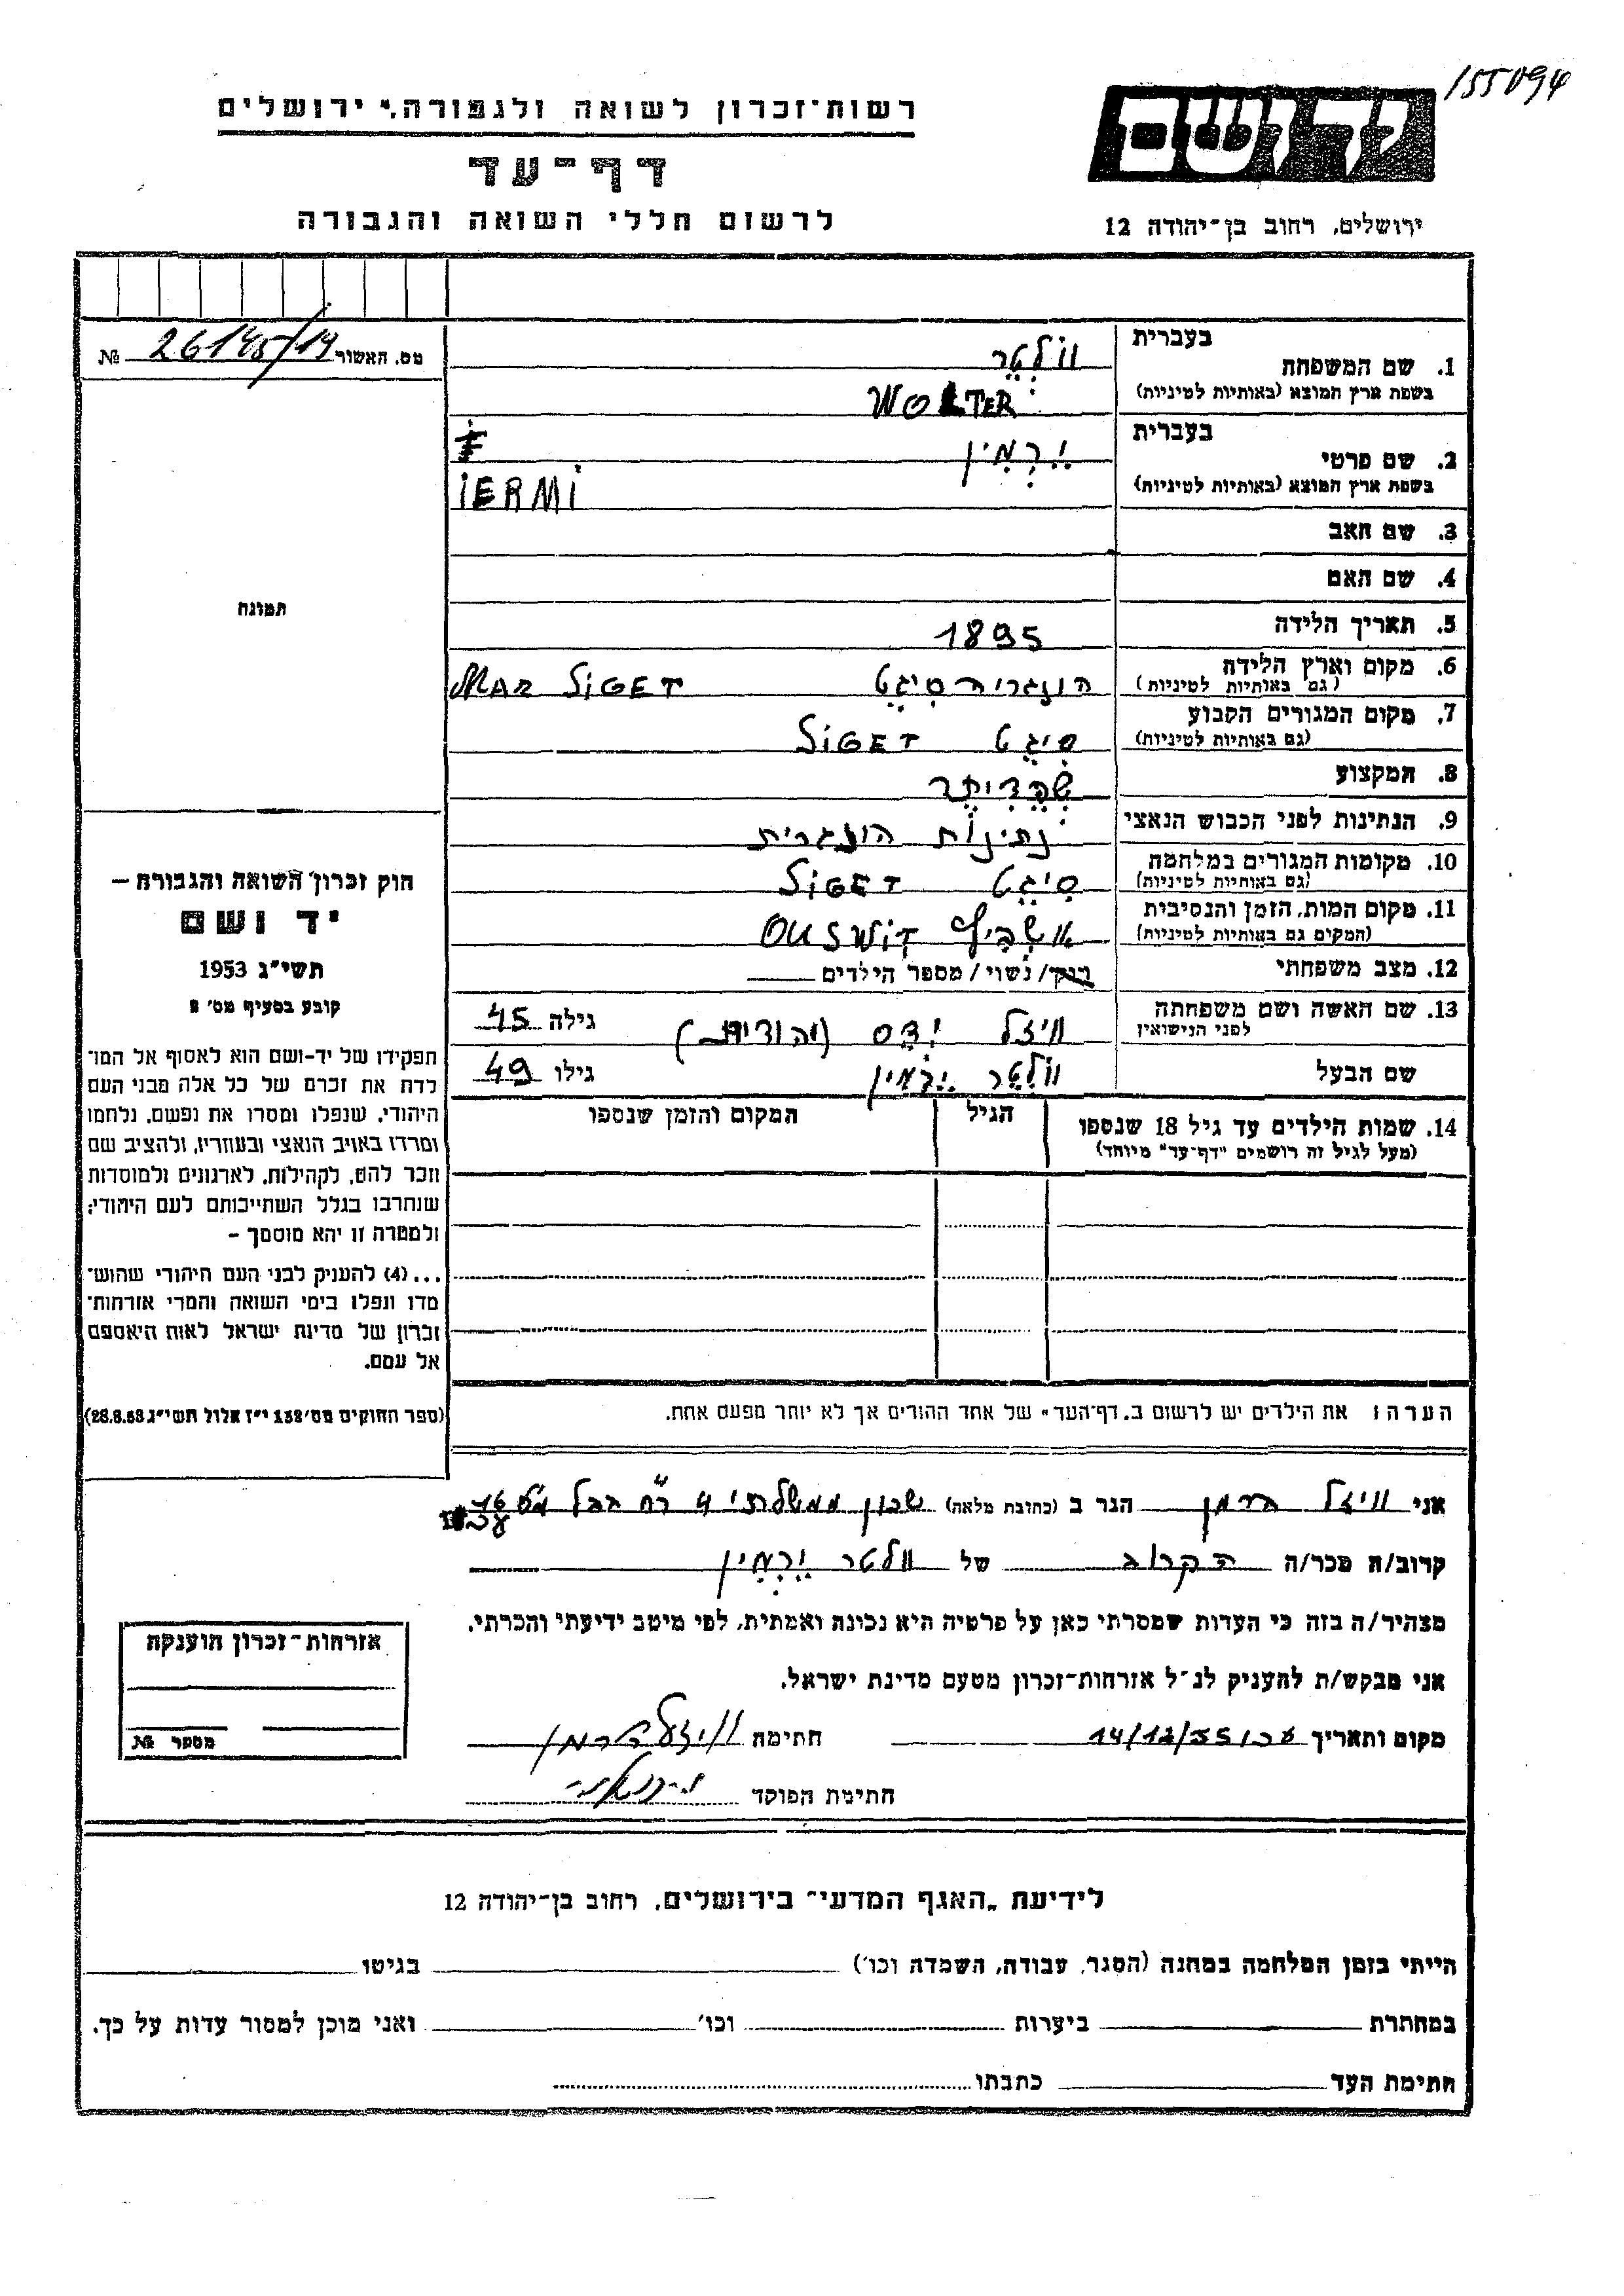 155094
יד ושם
רשות־זכרון לשואה ולגבורה, ירושלים
דף־עד
לרשום חללי השואה והגבורה
ירושלים, רחוב בן־יהודה 12
מס. האשור 26145/19 №
תמונה
חוק זכרון השואה והגבורה —
יד ושם
תשי״ג 1953
קובע בסעיף מס׳ 2
תפקידו של יד-ושם הוא לאסוף אל המו־
לדת את זכרם של כל אלה מבני העם
היהודי, שנפלו ומסרו את נפשם, נלחמו
ומרדו באויב הנאצי ובעוזריו, ולהציב שם
וזכר להם, לקהילות, לארגונים ולמוסדות
שנחרבו בגלל השתייכותם לעם היהודי;
ולמטרה זו יהא מוסמך —
...(4) להעניק לבני העם היהודי שהוש־
מדו ונפלו בימי השואה והמרי אזרחות־
זכרון של מדינת ישראל לאות היאספם
אל עמם.
(ספר החוקים מס׳ 132 י״ז אלול תשי״ג 28.8.53)
בעברית
1. שם המשפחה וולטר
בשפת ארץ המוצא (באותיות לטיניות) WOLTER
בעברית
2. שם פרטי יֶרְמִין
בשפת ארץ המוצא (באותיות לטיניות) iERMi
3. שם האב
4. שם האם
5. תאריך הלידה 1895
6. מקום וארץ הלידה הונגריה סיגט MAR SiGET
(גם באותיות לטיניות)
7. מקום המגורים הקבוע סיגט SiGET
(גם באותיות לטיניות)
8. המקצוע
9. הנתינות לפני הכבוש הנאצי נתינות הונגרית
10. מקומות המגורים במלחמה סיגט SiGET
(גם באותיות לטיניות)
11. מקום המות, הזמן והנסיבות OUSWiT
(המקום גם באותיות לטיניות)
12. מצב משפחתי רווק/ נשוי/ מספר הילדים
13. שם האשה ושם משפחתה וויזל (יהודית) גילה 45
לפני הנישואין
שם הבעל וולטר ירמין גילו 49
14. שמות הילדים עד גיל 18 שנספו הגיל המקום והזמן שנספו
(מעל לגיל זה רושמים ״דף־עד״ מיוחד)
הערה: את הילדים יש לרשום ב„דף־העד״ של אחד ההורים אך לא יותר מפעם אחת.
אני וויזל הרמן הגר ב (כתובת מלאה) שכון ממשלתי 4
קרוב/ה מכר/ה הקרוב של וולטר ירמין
מצהיר/ה בזה כי העדות שמסרתי כאן על פרטיה היא נכונה ואמתית, לפי מיטב ידיעתי והכרתי.
אני מבקש/ת להעניק לנ״ל אזרחות־זכרון מטעם מדינת ישראל.
מקום ותאריך עכו 14/12/55 חתימה וויזל הרמן
חתימת הפוקד
אזרחות־זכרון הוענקה
מספר №
לידיעת „האגף המדעי״ בירושלים, רחוב בן־יהודה 12
הייתי בזמן המלחמה במחנה (הסגר, עבודה, השמדה וכו׳) בגיטו
במחתרת ביערות וכו׳ ואני מוכן למסור עדות על כך.
חתימת העד כתבתו